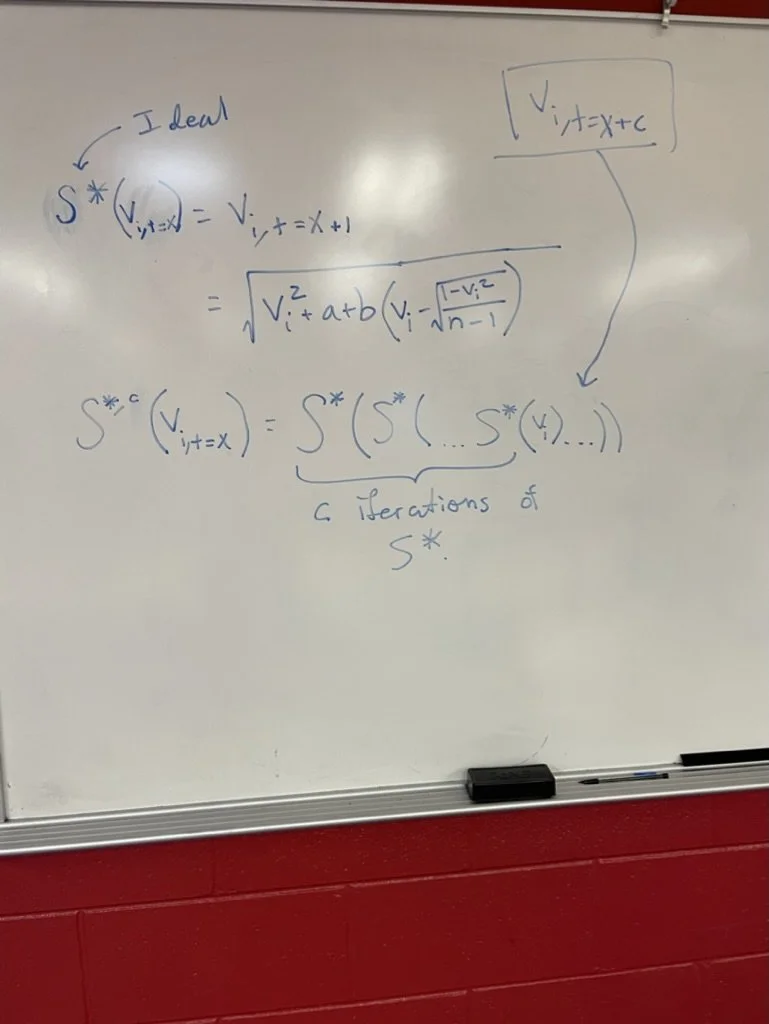 Ideal
V_{i,t=x+c}
S*(V_{i,t=x}) = V_{i,t=x+1}
= √(V_i² + a + b(V_i - √((1-V_i²)/(n-1))))
S^{*,c}(V_{i,t=x}) = S*(S*(... S*(V_i)...))
c iterations of
S*.